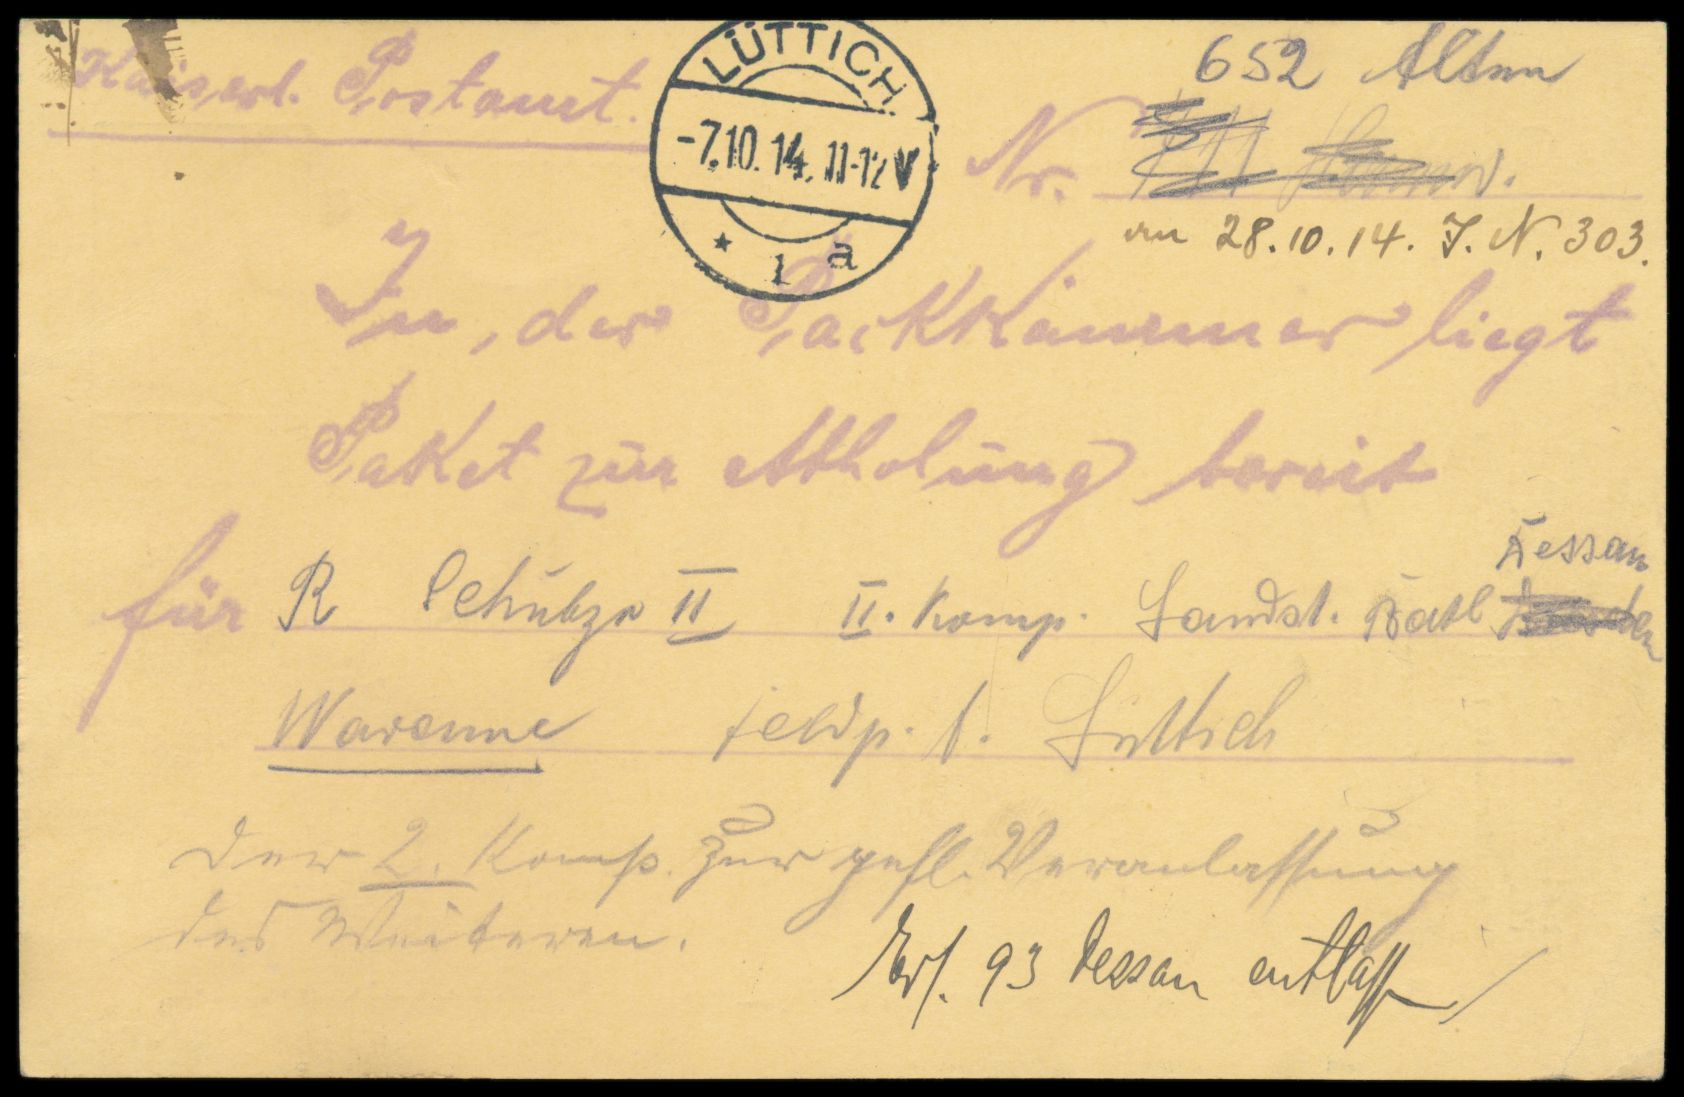 Kaiserl. Postamt.
LÜTTICH
-7.10.14. 11-12 V
* 1 a
652 Altona
Nr.
an 28.10.14. J. N. 303.
In der Packkammer liegt
Paket zur Abholung bereit
Dessau
für R Schubze II II. Komp. Landst. Batl
Warenne Feldp. 1. Lüttich
Der 2. Komp. zur gefl. Veranlassung
des Weiteren.
93 Dessau entlass